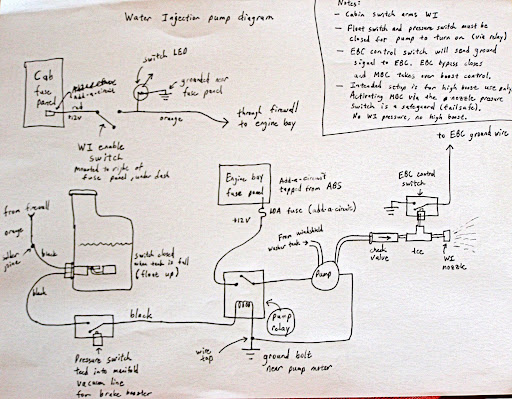 Water Injection pump diagram
Notes:
- Cabin switch arms WI
- Float switch and pressure switch must be
closed for pump to turn on (via relay)
- EBC control switch will send ground
signal to EBC. EBC bypass closes
and MBC takes over boost control.
- Intended setup is for high boost use only.
Activating MBC via the nozzle pressure
switch is a safeguard (failsafe).
No WI pressure, no high boost.
switch LED
Cab
fuse
panel
add-a-circuit
red
+12V
grounded near
fuse panel
orange
through firewall
to engine bay
WI enable
switch
mounted to right of
fuse panel, under dash
to EBC ground wire
Engine bay
fuse panel
Add-a-circuit
tapped from ABS
+12V
10A fuse (add-a-circuit)
EBC control
switch
from firewall
orange
black
switch closed
when tank is full
(float up)
From windshield
washer tank
Pump
check
valve
tee
WI
nozzle
black
black
pump
relay
wire
tap
ground bolt
near pump motor
Pressure switch
teed into manifold
vacuum line
for brake booster